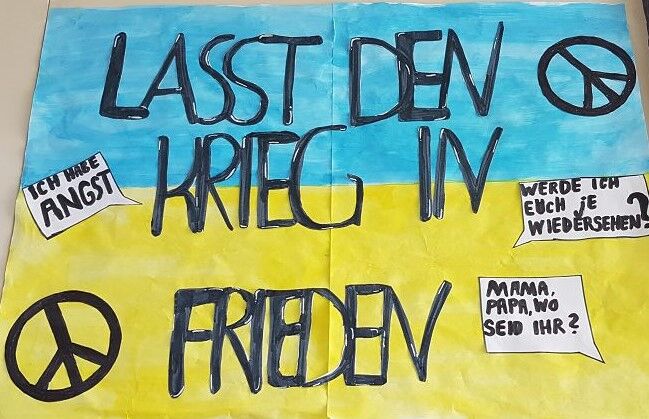 LASST DEN
KRIEG IN
FRIEDEN
ICH HABE
ANGST
WERDE ICH
EUCH jE
WIEDERSEHEN?
MAMA,
PAPA, WO
SEID IHR?